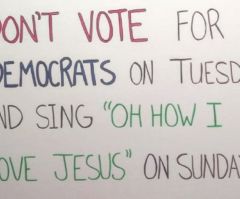 DON'T VOTE FOR
DEMOCRATS ON TUESD
ND SING "OH HOW I
OVE JESUS" ON SUNDAY